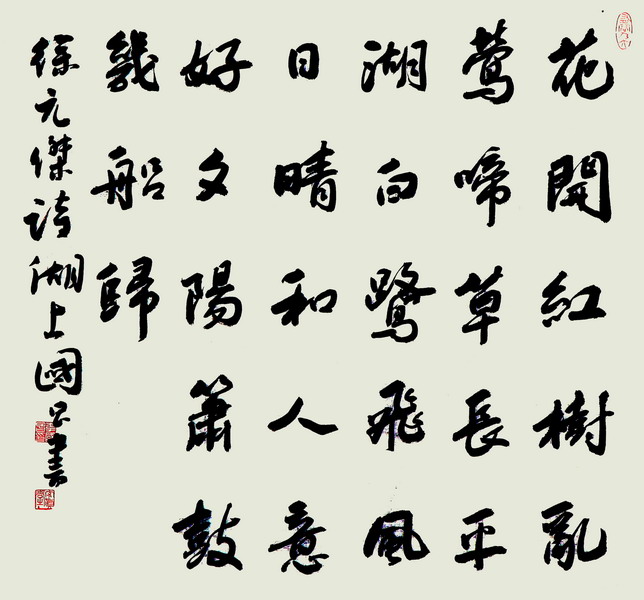 花開紅樹亂
鶯啼草長平
湖白鷺飛風
日晴和人意
好夕陽簫鼓
幾船歸
徐元傑詩湖上國書